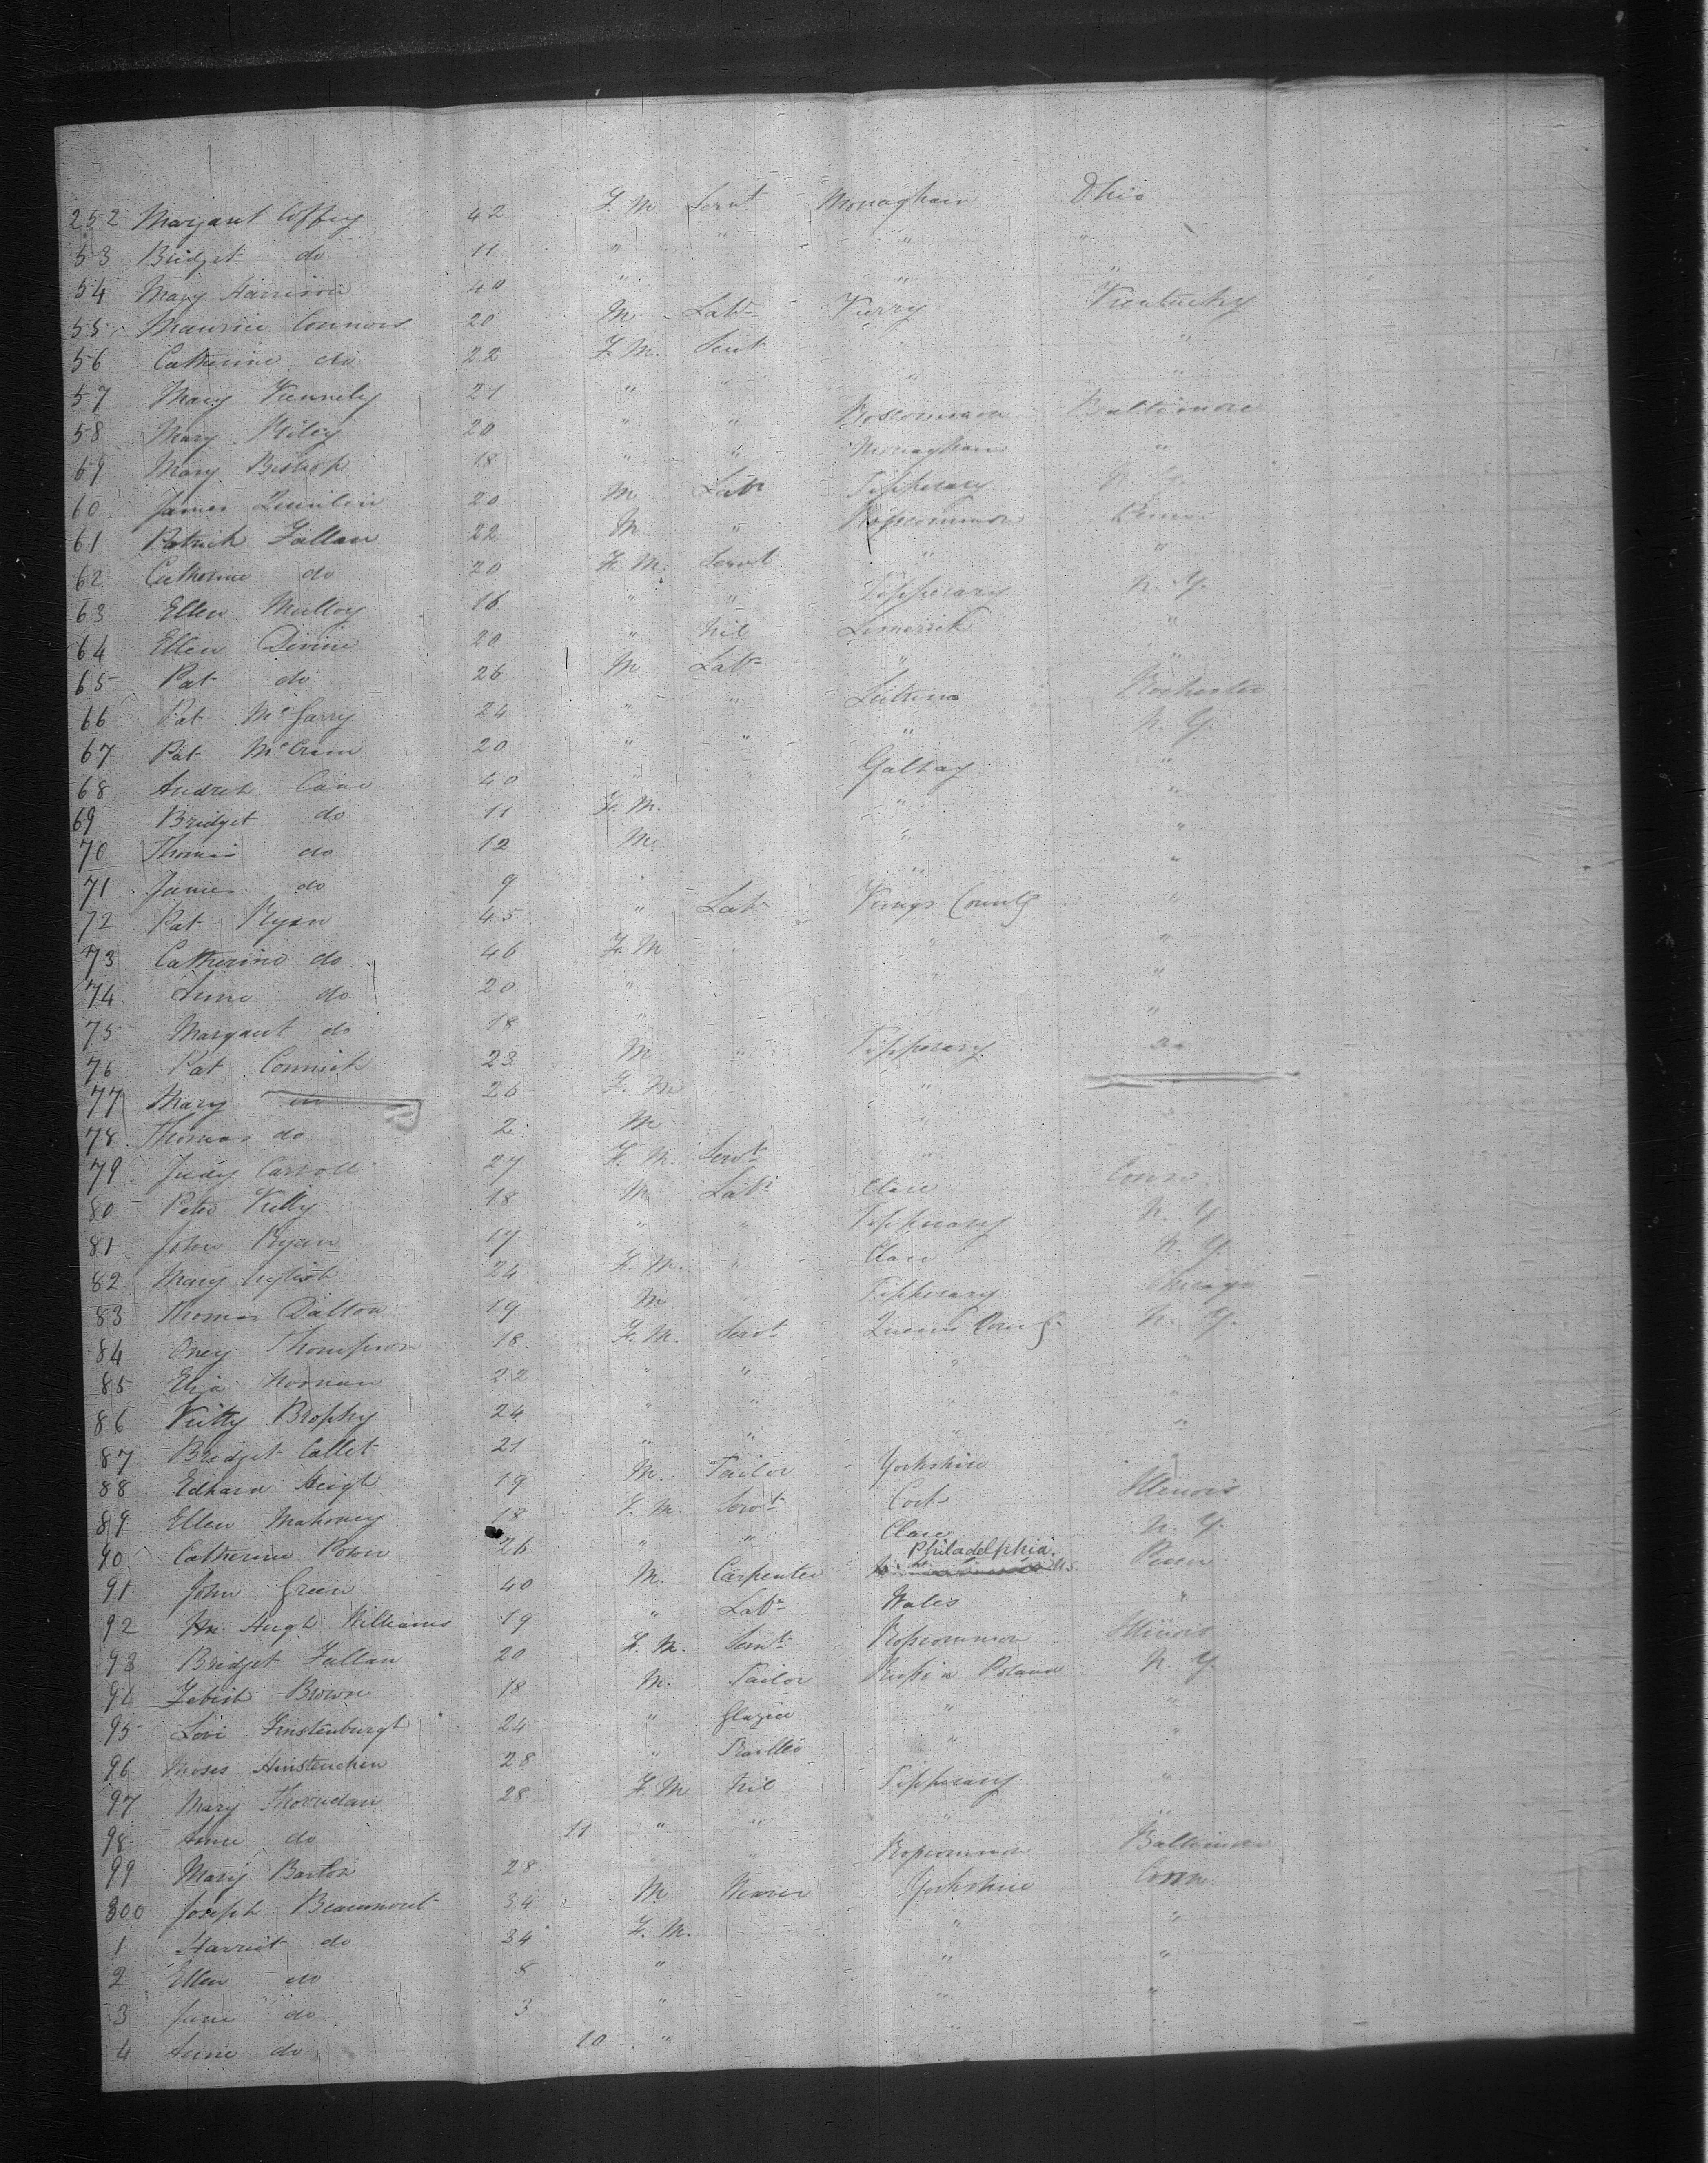 252 Margaret Coffey 42 F. M Servt Monaghan Ohio
53 Bridget do 11 " " " "
54 Mary Harrison 40 " " "
55 Maurice Connors 20 M Labr Kerry Kentucky
56 Catherine do 22 F. M. Sevt " "
57 Mary Kennely 21 " " " "
58 Mary Riley 20 " " Roscommon Baltimore
59 Mary Bishop 18 " " Monaghan "
60 James Quinlin 20 M Labr Tipperary N. Y.
61 Patrick Fallan 22 M " Roscommon Penn.
62 Catherine do 20 F. M. Servt " "
63 Ellen Mulloy 16 " " Tipperary N. Y.
64 Ellen Divine 20 " Nil Limerick "
65 Pat do 26 M Labr " "
66 Pat McGarry 24 " " Leitrim Rochester
67 Pat McCrann 20 " " " N. Y.
68 Andrew Cain 40 " " Galway "
69 Bridget do 11 F. M. " "
70 Thomas do 12 M. " "
71 James do 9 " " "
72 Pat Ryan 45 " Labr Kings County "
73 Catherine do 46 F. M " "
74 do 20 " " "
75 Margaret do 18 " " "
76 Pat Connick 23 M " Tipperary "
77 Mary do 26 F. M "
78 Thomas do 2 M "
79 Judy Carroll 27 F. M. Servt "
80 Peter Kelly 18 M Labr Clare Conn.
81 John Ryan 17 " " Tipperary N. Y
82 Mary 24 F. M. " Clare N. Y.
83 Thomas Dalton 19 M " Tipperary Chicago
84 Oney Thompson 18 F. M. Servt Queens County N. Y.
85 Eliza Noonan 22 " " " "
86 Kitty Brophy 24 " " " "
87 Bridget Collet 21 " " " "
88 Edward Heigh 19 M. Tailor Yorkshire "
89 Ellen Mahoney 18 F. M. Servt Cork Illinois
90 Catherine Power 26 " " Clare N. Y.
91 John Green 40 M. Carpenter Philadelphia. Penn
92 Hugh Williams 19 " Labr Wales "
93 Bridget Fallan 20 F. M. Servt Roscommon Illinois
94 Brown 18 M. Tailor Russia Poland N. Y.
95 Levi Finstenburgh 24 " Glazier " "
96 Moses 28 " " "
97 Mary 28 F. M Nil Tipperary "
98 Anne do 11 " " " "
99 Mary Barton 28 " " Roscommon Baltimore
300 Joseph Beaumont 34 M Yorkshire Conn.
1 Harriet do 34 F. M. " "
2 Ellen do 8 " " "
3 Jane do 3 " " "
4 Anne do 10 " " "